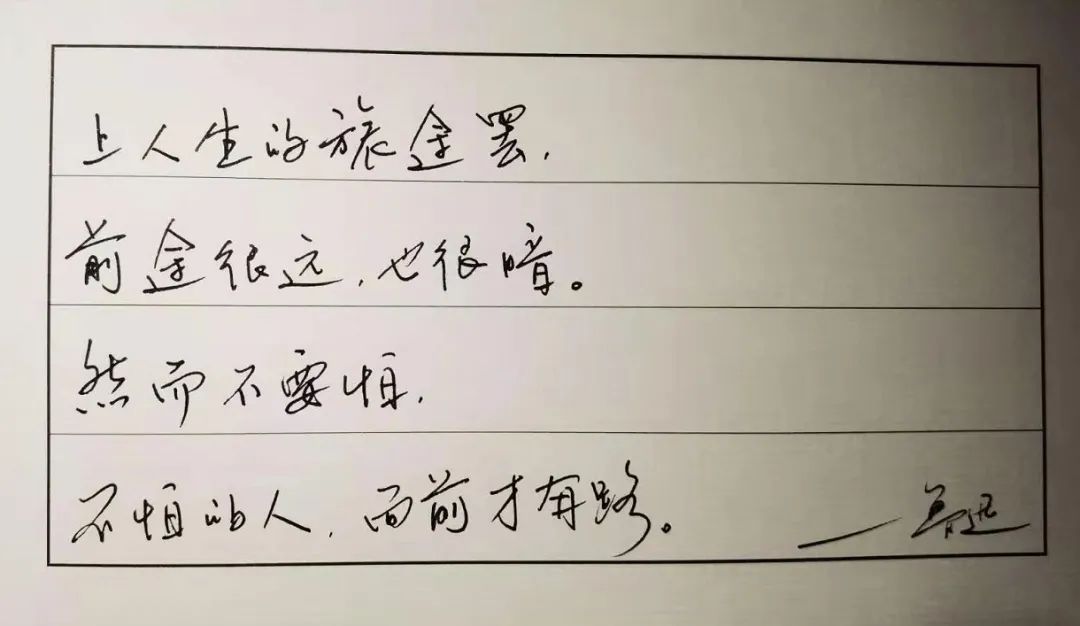 上人生的旅途罢,
前途很远,也很暗。
然而不要怕,
不怕的人,面前才有路。
——鲁迅